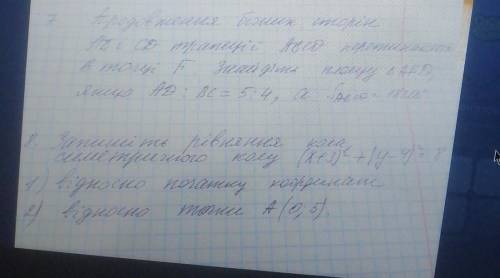 7. Продовження бічних сторін
AB і CD трапеції ABCD перетинаються
в точці F. Знайдіть площу
якщо AD : BC = 5:4, а
8. Запишіть рівняння кола
симетричного колу (x+3)² + (y-4)² = 8
1) відносно початку координат
2) відносно точки A (0, 5).